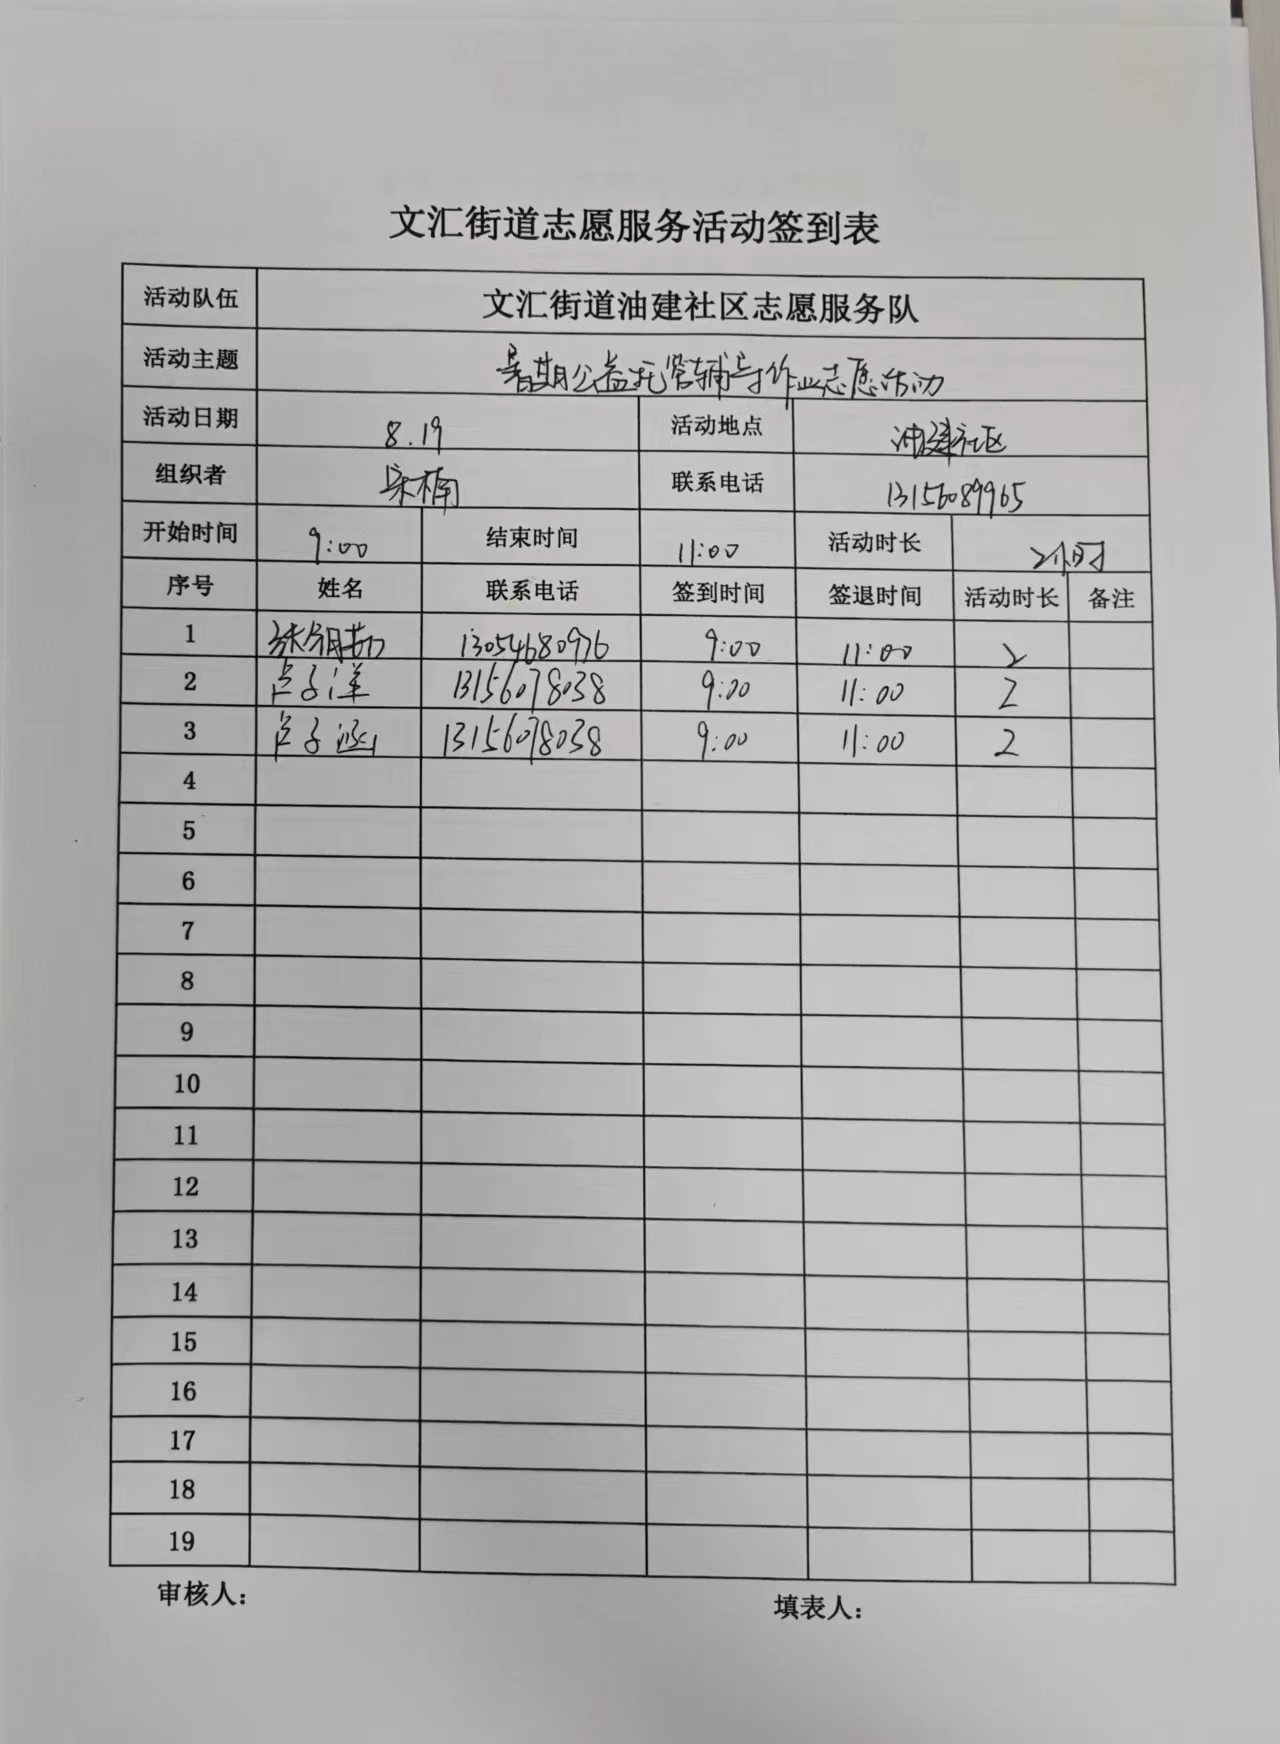 文汇街道志愿服务活动签到表
活动队伍 文汇街道油建社区志愿服务队
活动主题 暑期公益托管辅导作业志愿活动
活动日期 8.19 活动地点 油建社区
组织者 宋楠 联系电话 13156089965
开始时间 9:00 结束时间 11:00 活动时长 2小时
序号 姓名 联系电话 签到时间 签退时间 活动时长 备注
1 13054680976 9:00 11:00 2
2 卢子洋 13156078038 9:00 11:00 2
3 卢子涵 13156078038 9:00 11:00 2
4
5
6
7
8
9
10
11
12
13
14
15
16
17
18
19
审核人： 填表人：